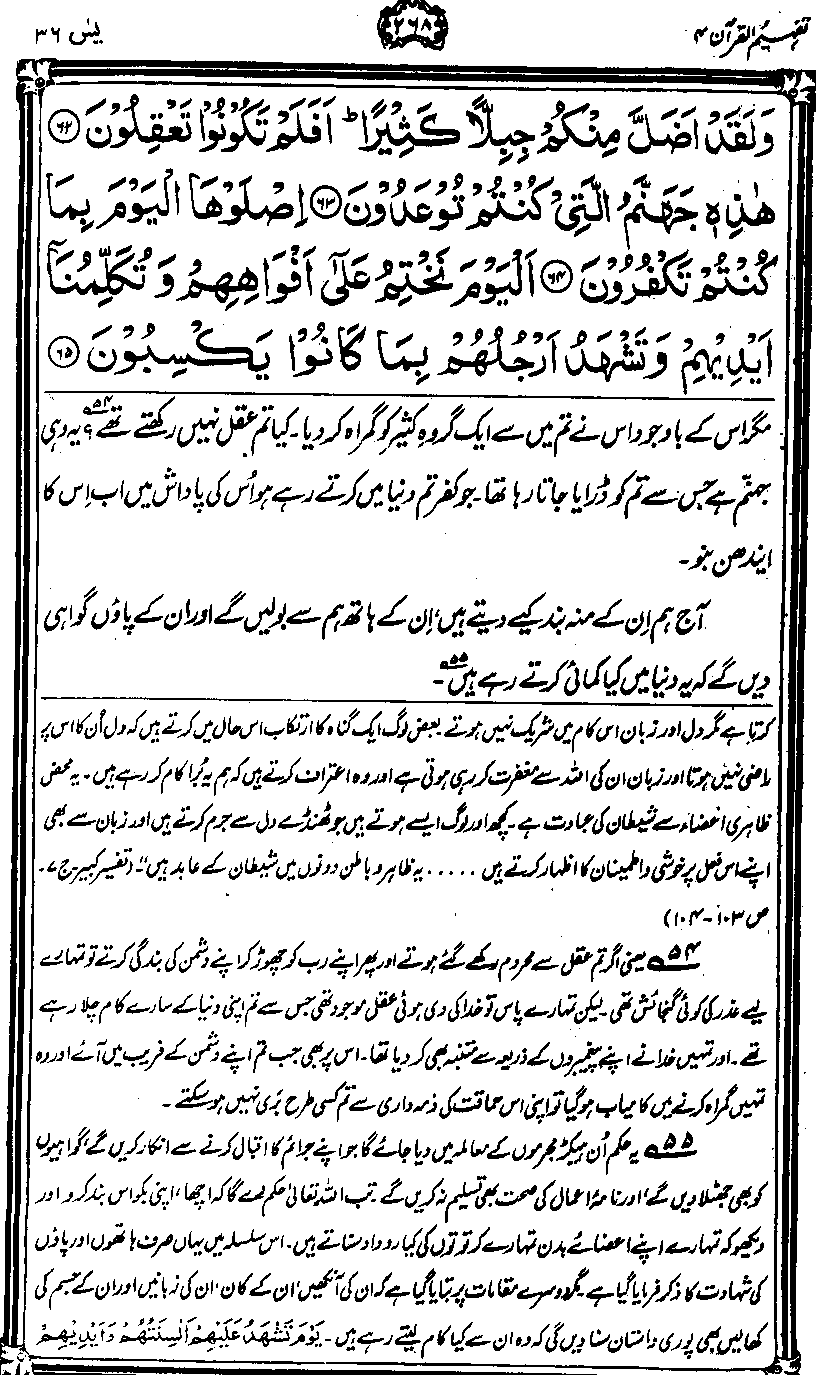 تفہیم القرآن ۴ ۲۶۸ یٰس ۳۶
وَلَقَدْ اَضَلَّ مِنْكُمْ جِبِلًّا كَثِيْرًا ؕ اَفَلَمْ تَكُوْنُوْا تَعْقِلُوْنَ ﴿۶۲﴾
هٰذِهٖ جَهَنَّمُ الَّتِيْ كُنْتُمْ تُوْعَدُوْنَ ﴿۶۳﴾ اِصْلَوْهَا الْيَوْمَ بِمَا
كُنْتُمْ تَكْفُرُوْنَ ﴿۶۴﴾ اَلْيَوْمَ نَخْتِمُ عَلٰۤى اَفْوَاهِهِمْ وَ تُكَلِّمُنَاۤ
اَيْدِيْهِمْ وَ تَشْهَدُ اَرْجُلُهُمْ بِمَا كَانُوْا يَكْسِبُوْنَ ﴿۶۵﴾
مگر اس کے باوجود اس نے تم میں سے ایک گروہِ کثیر کو گمراہ کر دیا۔ کیا تم عقل نہیں رکھتے تھے؟ ۵۴ یہ وہی
جہنّم ہے جس سے تم کو ڈرایا جاتا رہا تھا۔ جو کفر تم دنیا میں کرتے رہے ہو اُس کی پاداش میں اب اِس کا
ایندھن بنو۔
آج ہم اِن کے منہ بند کیے دیتے ہیں، اِن کے ہاتھ ہم سے بولیں گے اور ان کے پاؤں گواہی
دیں گے کہ یہ دنیا میں کیا کمائی کرتے رہے ہیں ۵۵۔
کرتا ہے مگر دل اور زبان اس کام میں شریک نہیں ہوتے۔ بعض لوگ ایک گناہ کا ارتکاب اس حال میں کرتے ہیں کہ دل اُن کا اس پر
راضی نہیں ہوتا اور زبان ان کی اللہ سے مغفرت کر رہی ہوتی ہے اور وہ اعتراف کرتے ہیں کہ ہم یہ بُرا کام کر رہے ہیں۔ یہ محض
ظاہری اعضاء سے شیطان کی عبادت ہے۔ کچھ اور لوگ ایسے ہوتے ہیں جو ٹھنڈے دل سے جرم کرتے ہیں اور زبان سے بھی
اپنے اس فعل پر خوشی و اطمینان کا اظہار کرتے ہیں ..... یہ ظاہر و باطن دونوں میں شیطان کے عابد ہیں"۔ (تفسیر کبیر۔ ج ۷۔
ص ۱۰۳-۱۰۴)
۵۴ یعنی اگر تم عقل سے محروم رکھے گئے ہوتے اور پھر اپنے رب کو چھوڑ کر اپنے دشمن کی بندگی کرتے تو تمہارے
لیے عذر کی کوئی گنجائش تھی۔ لیکن تمہارے پاس تو خدا کی دی ہوئی عقل موجود تھی جس سے تم اپنی دنیا کے سارے کام چلا رہے
تھے۔ اور تمہیں خدا نے اپنے پیغمبروں کے ذریعہ سے متنبہ بھی کر دیا تھا۔ اس پر بھی جب تم اپنے دشمن کے فریب میں آئے اور وہ
تمہیں گمراہ کرنے میں کامیاب ہو گیا تو اپنی اس حماقت کی ذمہ داری سے تم کسی طرح بَری نہیں ہو سکتے۔
۵۵ یہ حکم اُن ہیکڑ مجرموں کے معاملہ میں دیا جائے گا جو اپنے جرائم کا اقبال کرنے سے انکار کریں گے، گواہیوں
کو بھی جھٹلا دیں گے، اور نامۂ اعمال کی صحت بھی تسلیم نہ کریں گے۔ تب اللہ تعالیٰ حکم دے گا کہ اچھا، اپنی بکواس بند کرو اور
دیکھو کہ تمہارے اپنے اعضائے بدن تمہارے کرتوتوں کی کیا روداد سناتے ہیں۔ اس سلسلہ میں یہاں صرف ہاتھوں اور پاؤں
کی شہادت کا ذکر فرمایا گیا ہے۔ مگر دوسرے مقامات پر بتایا گیا ہے کہ ان کی آنکھیں، ان کے کان، ان کی زبانیں اور ان کے جسم کی
کھالیں بھی پوری داستان سنا دیں گی کہ وہ ان سے کیا کام لیتے رہے ہیں۔ يَوْمَ تَشْهَدُ عَلَيْهِمْ اَلْسِنَتُهُمْ وَاَيْدِيْهِمْ